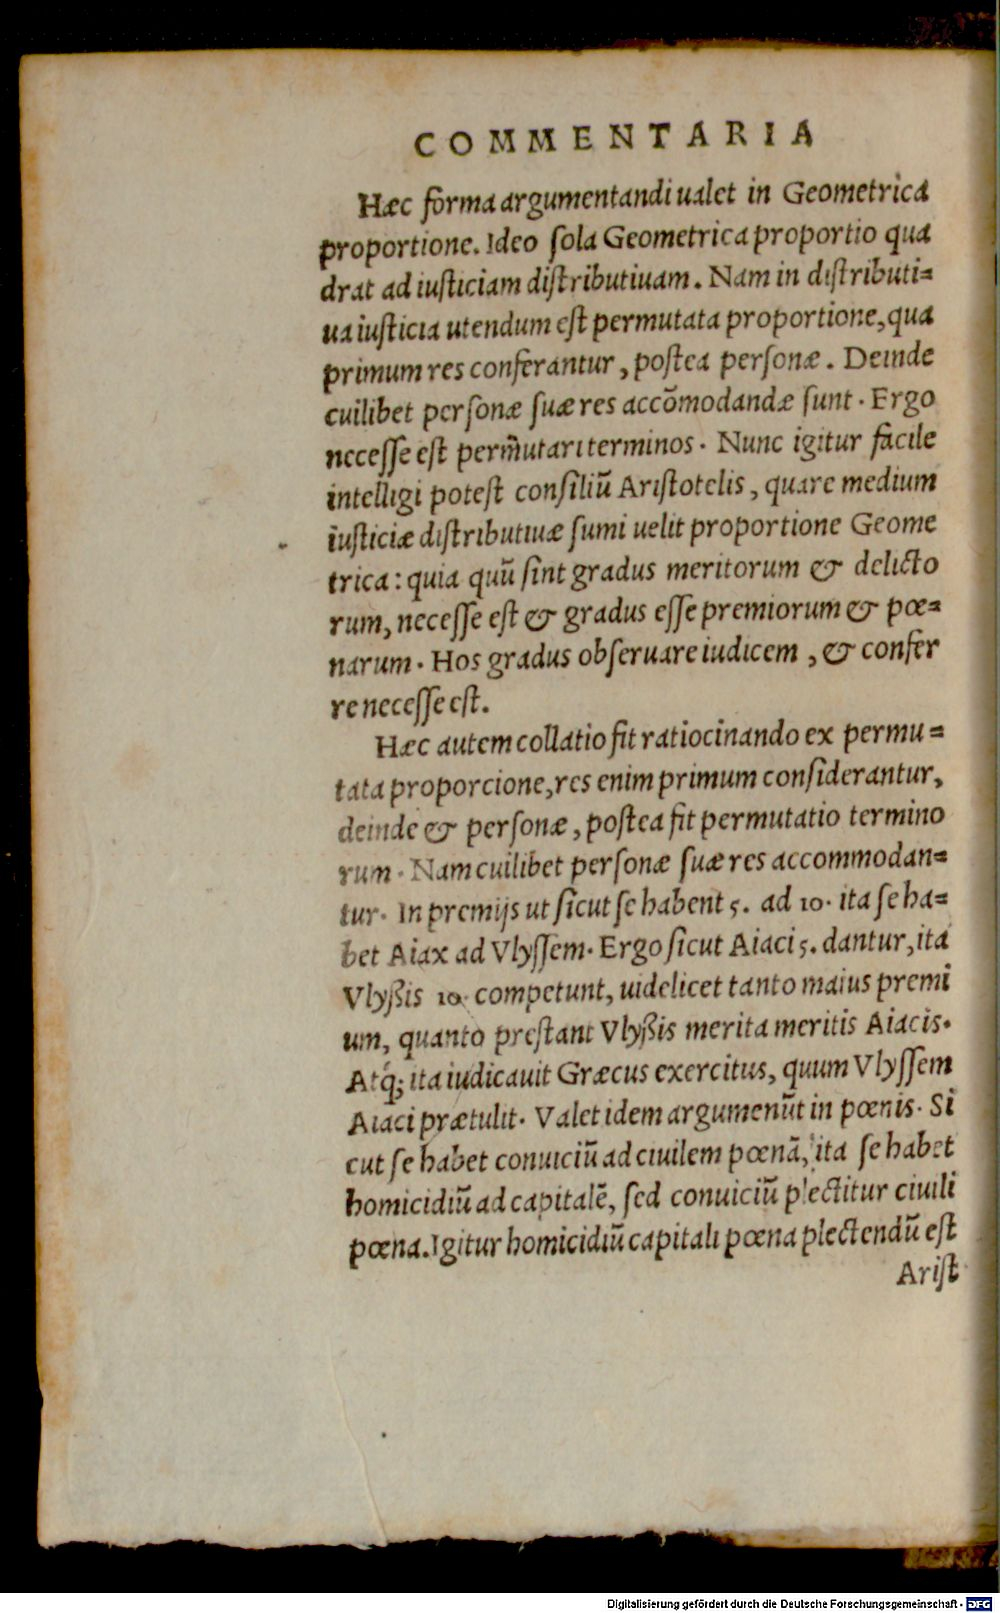 COMMENTARIA
Hæc forma argumentandi ualet in Geometrica
proportione. Ideo ſola Geometrica proportio qua
drat ad iuſticiam diſtributiuam. Nam in diſtributi=
ua iuſticia utendum eſt permutata proportione, qua
primum res conferantur, poſtea perſonæ. Deinde
cuilibet perſonæ ſuæ res accõmodandæ ſunt. Ergo
neceſſe eſt perm̃utari terminos. Nunc igitur facile
intelligi poteſt conſiliũ Ariſtotelis, quare medium
iuſticiæ diſtributiuæ ſumi uelit proportione Geome
trica: quia quũ ſint gradus meritorum & delicto
rum, neceſſe eſt & gradus eſſe premiorum & pœ=
narum. Hos gradus obſeruare iudicem, & confer
re neceſſe eſt.
Hæc autem collatio fit ratiocinando ex permu=
tata proporcione, res enim primum conſiderantur,
deinde & perſonæ, poſtea fit permutatio termino
rum. Nam cuilibet perſonæ ſuæ res accommodan=
tur. In premijs ut ſicut ſe habent 5. ad 10. ita ſe ha=
bet Aiax ad Vlyſſem. Ergo ſicut Aiaci 5. dantur, ita
Vlyßis 10. competunt, uidelicet tanto maius premi
um, quanto preſtant Vlyßis merita meritis Aiacis.
Atq́; ita iudicauit Græcus exercitus, quum Vlyſſem
Aiaci prætulit. Valet idem argumenũt in pœnis. Si
cut ſe habet conuiciũ ad ciuilem pœnã, ita ſe habet
homicidiũ ad capitalẽ, ſed conuiciũ plectitur ciuili
pœna. Igitur homicidiũ capitali pœna plectendũ eſt
Ariſt
Digitalisierung gefördert durch die Deutsche Forschungsgemeinschaft - DFG